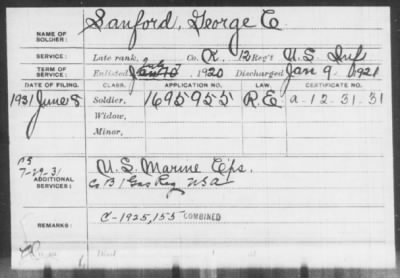 Sanford, George E.
NAME OF
SOLDIER:
SERVICE: Late rank, Co. K, 12 Reg't U.S. Inf
TERM OF
SERVICE: Enlisted 1920 Discharged Jan 9, 1921
DATE OF FILING. CLASS. APPLICATION NO. LAW. CERTIFICATE NO.
1931 June 8 Soldier, 1695955 R.E. a-12-31-31
Widow,
Minor,
7-29-31
ADDITIONAL
SERVICES: U.S. Marine Cps.
Co B 1 Gas Reg USA
REMARKS: C-1925,155 COMBINED
Died